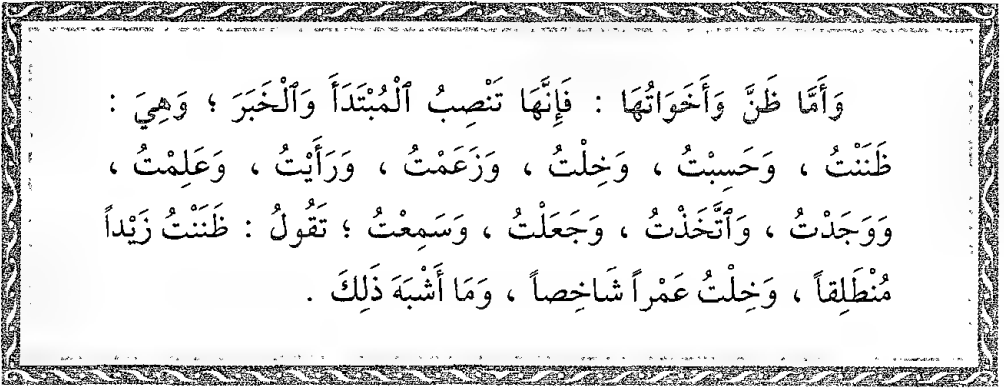 وَأَمَّا ظَنَّ وَأَخَوَاتُهَا : فَإِنَّهَا تَنْصِبُ ٱلْمُبْتَدَأَ وَٱلْخَبَرَ ؛ وَهِيَ :
ظَنَنْتُ ، وَحَسِبْتُ ، وَخِلْتُ ، وَزَعَمْتُ ، وَرَأَيْتُ ، وَعَلِمْتُ ،
وَوَجَدْتُ ، وَٱتَّخَذْتُ ، وَجَعَلْتُ ، وَسَمِعْتُ ؛ تَقُولُ : ظَنَنْتُ زَيْداً
مُنْطَلِقاً ، وَخِلْتُ عَمْراً شَاخِصاً ، وَمَا أَشْبَهَ ذَلِكَ .